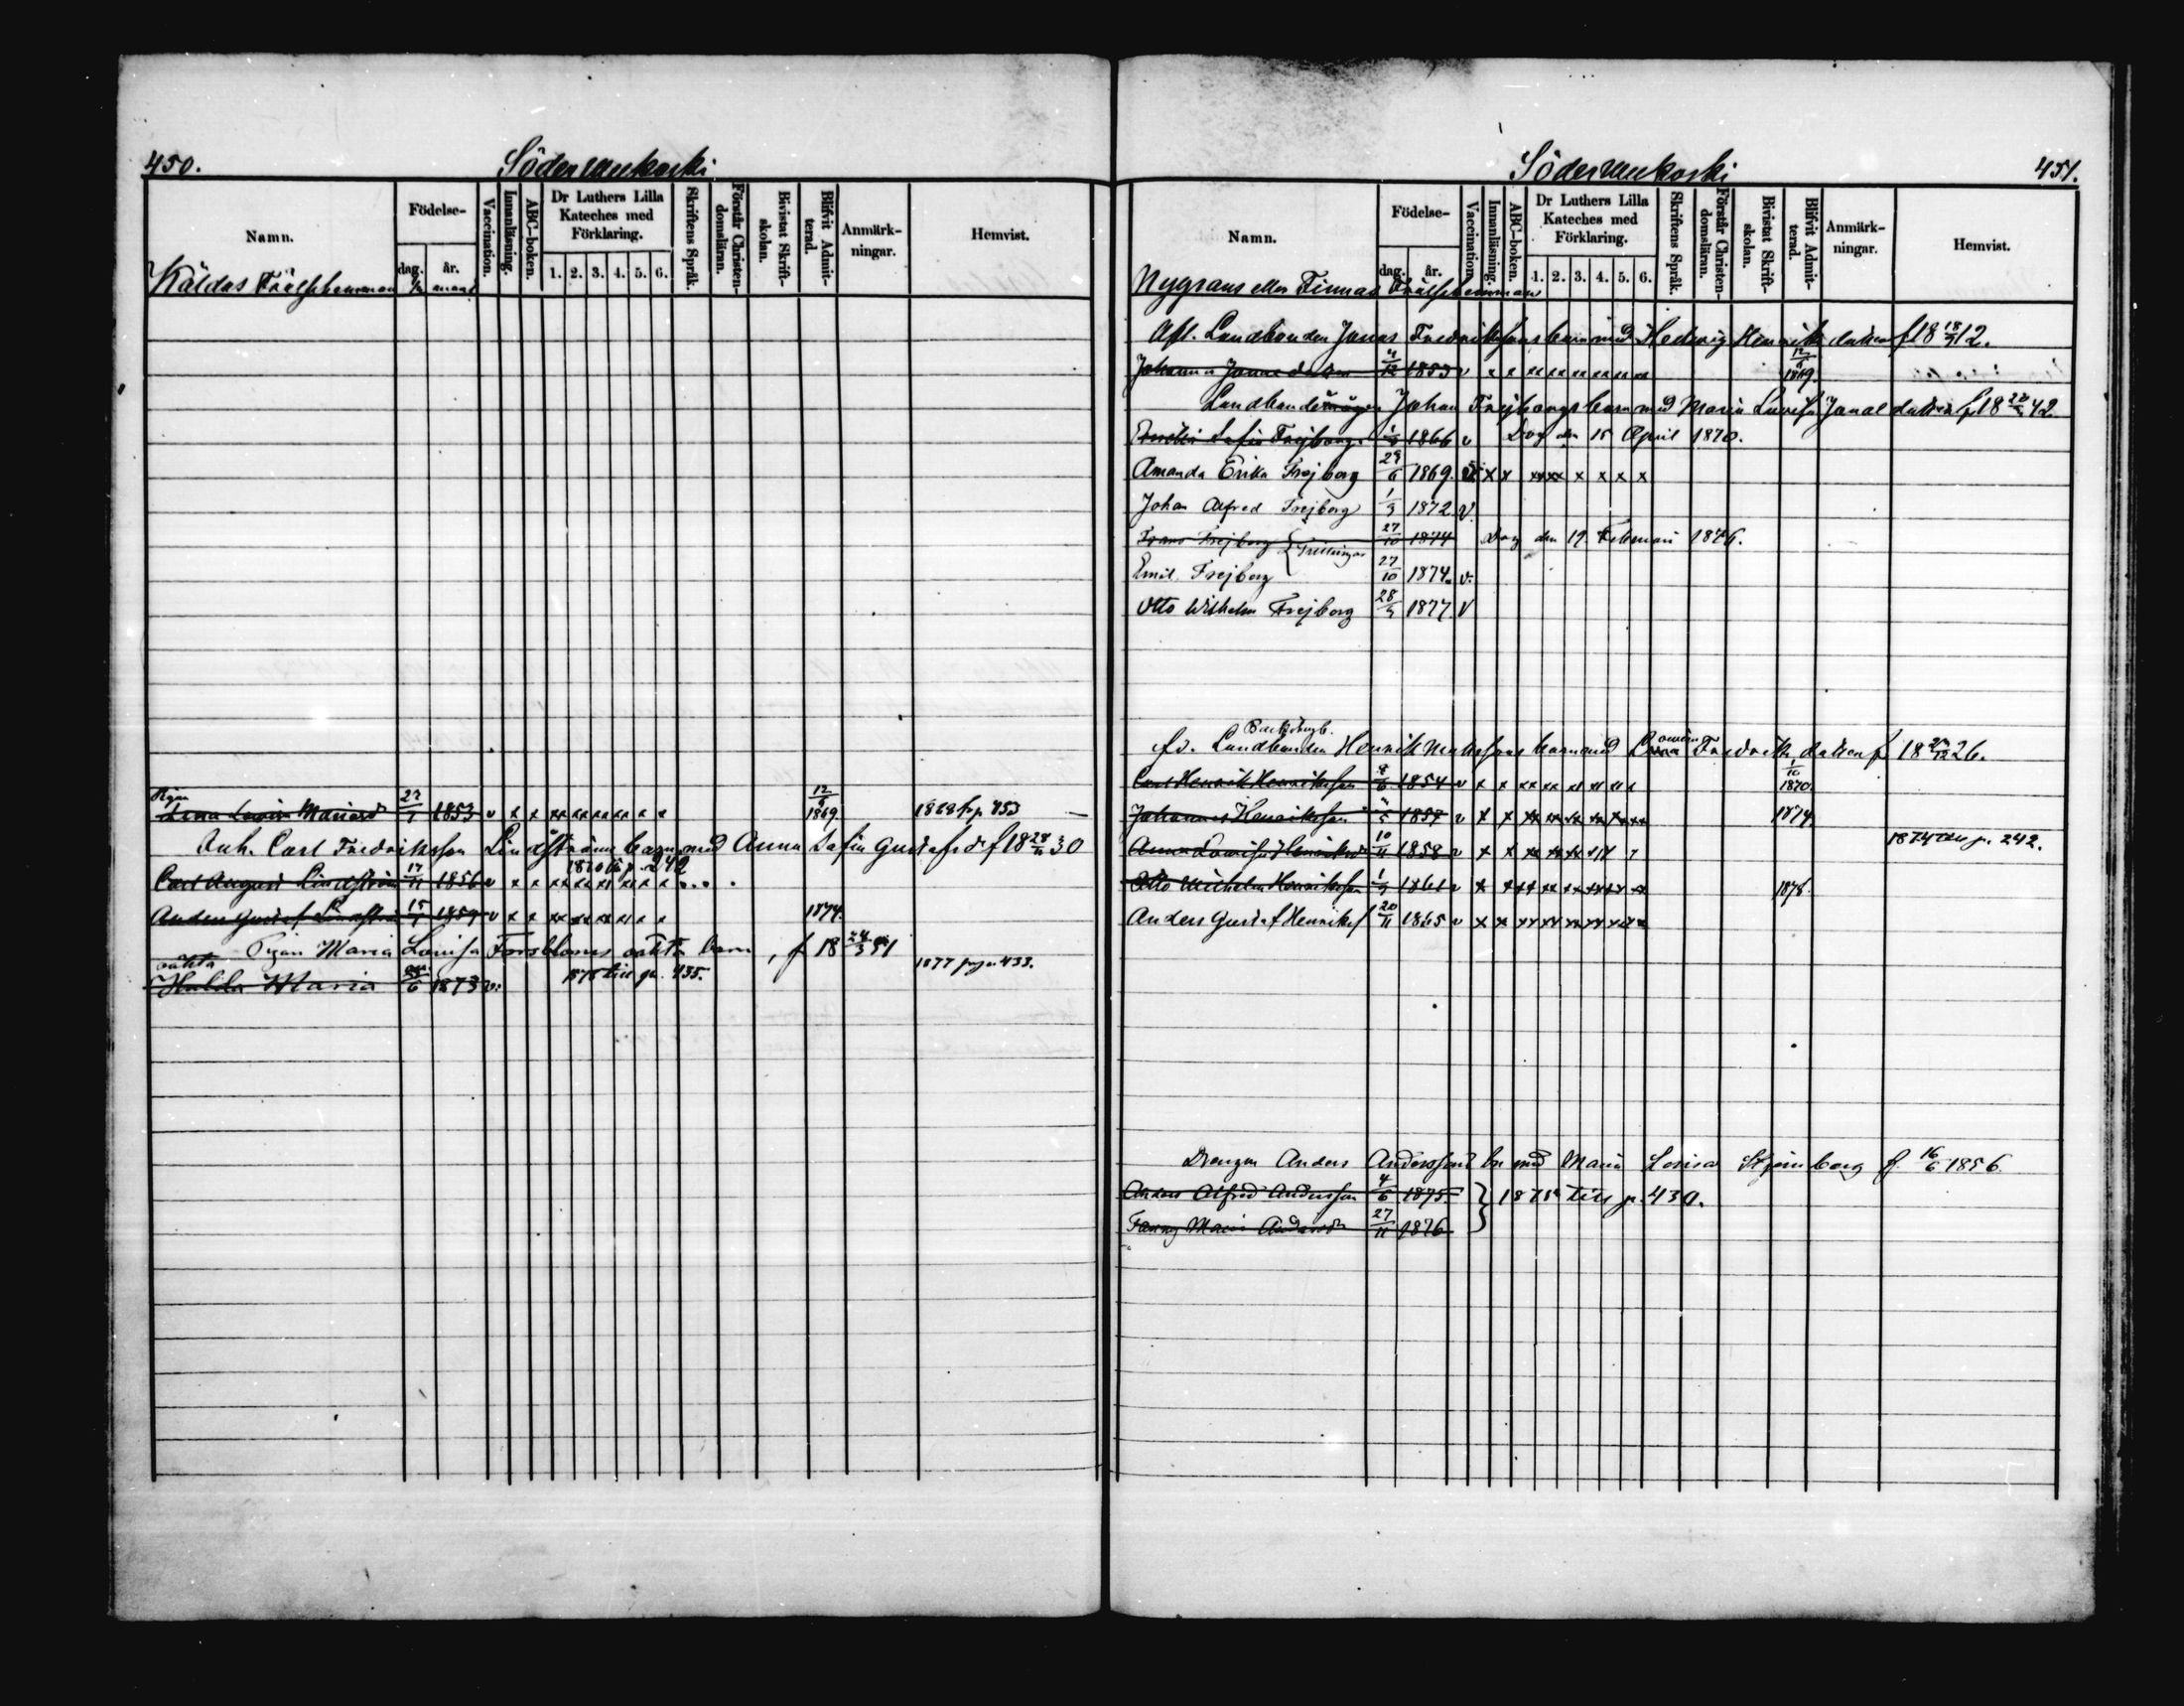 450.
Södervenkoski
Namn.
Födelse-
dag.
år.
Vaccination.
Innanläsning.
ABC-boken.
Dr Luthers Lilla
Kateches med
Förklaring.
1. 2. 3. 4. 5. 6.
Skriftens Språk.
Förstår Christen-
domsläran.
Bivistat Skrift-
skolan.
Blifvit Admit-
terad.
Anmärk-
ningar.
Hemvist.
Källdas Frälsehemman
Pigan 12/6
Lena Lovisa Mariasd 27/1 1853 v x x xx xx xx xx x x 1869 1868 fr. p. 453
Inh. Carl Fredriksson Lindströms barn med Anna Sofia Gustafsdr f 18 28/11 30
1870 till p. 242
Carl August Lindström 17/11 1856 v x x xx xx xx xx x x
Anders Gustaf Lindström 15/1 1859 v x x xx xx xx xx x x 1874.
Pigan Maria Lovisa Forsbloms oäkta barn, f 18 24/3 51
oäkta 1878 till pa. 435. 1877 från 433.
Hulda Maria 1873 v.
451.
Södervenkoski
Namn.
Födelse-
dag.
år.
Vaccination.
Innanläsning.
ABC-boken.
Dr Luthers Lilla
Kateches med
Förklaring.
1. 2. 3. 4. 5. 6.
Skriftens Språk.
Förstår Christen-
domsläran.
Bivistat Skrift-
skolan.
Blifvit Admit-
terad.
Anmärk-
ningar.
Hemvist.
Nygrans eller Finnas Frälsehemman
Afl. Landbonden Jonas Fredrikssons barn med Hedvig Henriks dotter f 18 18/9 12.
Johanna Jonasdotter 1853 v x x xx xx xx xx xx xx 12/6 1869.
Landbondemågen Johan Frejborgs barn med Maria Lovisa Jonasdotter f 18 42
Sofia Frejborg 1866 v Dog den 15 April 1870.
Amanda Erika Frejborg 29/6 1869. v x x xxxx x x x x
Johan Alfred Frejborg 1/3 1872 v
Frans Frejborg } Tvillingar 27/10 1874 Dog den 19 Februari 1876.
Emil Frejborg 27/10 1874. v.
Otto Wilhelm Frejborg 28/9 1877. V
Backstugb.
fd. Landbonden Henrik Matssons barn med Fredriks dotter f 18 26.
Carl Henrik Henriksson 1854 v x x xx xx xx xx x 1/10 1870.
Johannes Henriksson 1857 v x x xx xx xx xx xx 1874.
Anna Lovisa Henriksdr 10/11 1858 v x x xx xx xx 1874 till p. 242.
Otto Wilhelm Henriksson 1/3 1861 v x xxx xx xx xx xx xx 1878.
Anders Gustaf Henriksf 20/11 1865 v x x xx xx xx xx xx xx
Drengen Anders Anderssons bn med Maria Lovisa Stjernberg f. 16/6 1856.
Anders Alfred Andersson 4/6 1875 } 1878 till p. 430.
Fanny Maria Andersdr 27/11 1876